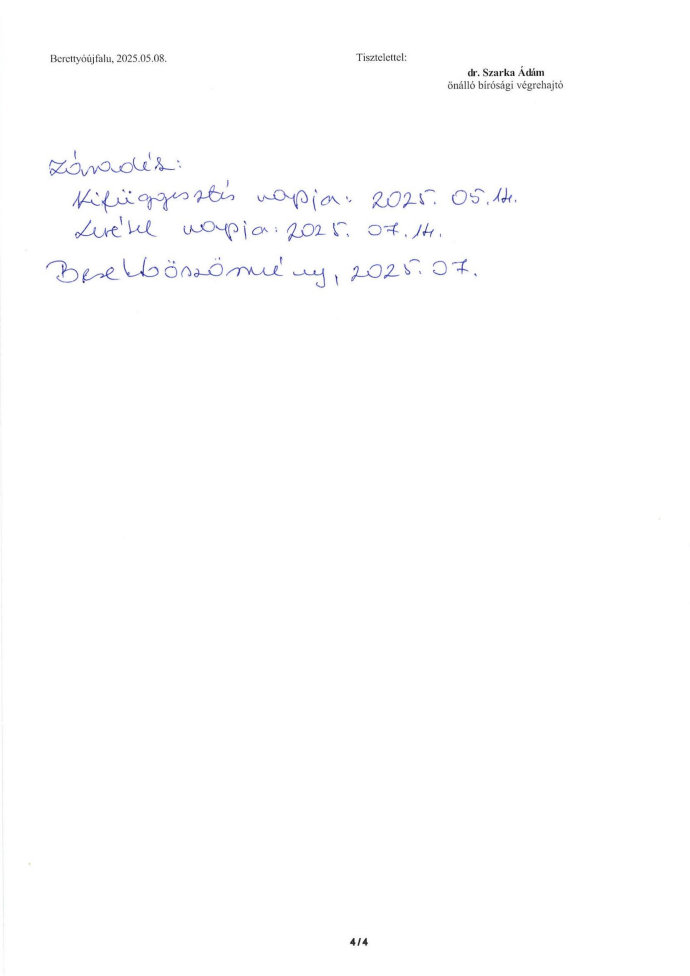 Berettyóújfalu, 2025.05.08. Tisztelettel:
dr. Szarka Ádám
önálló bírósági végrehajtó
Záradék:
Kifüggesztés napja: 2025. 05.14.
Levétel napja: 2025. 07.14.
2025. 07.
4/4